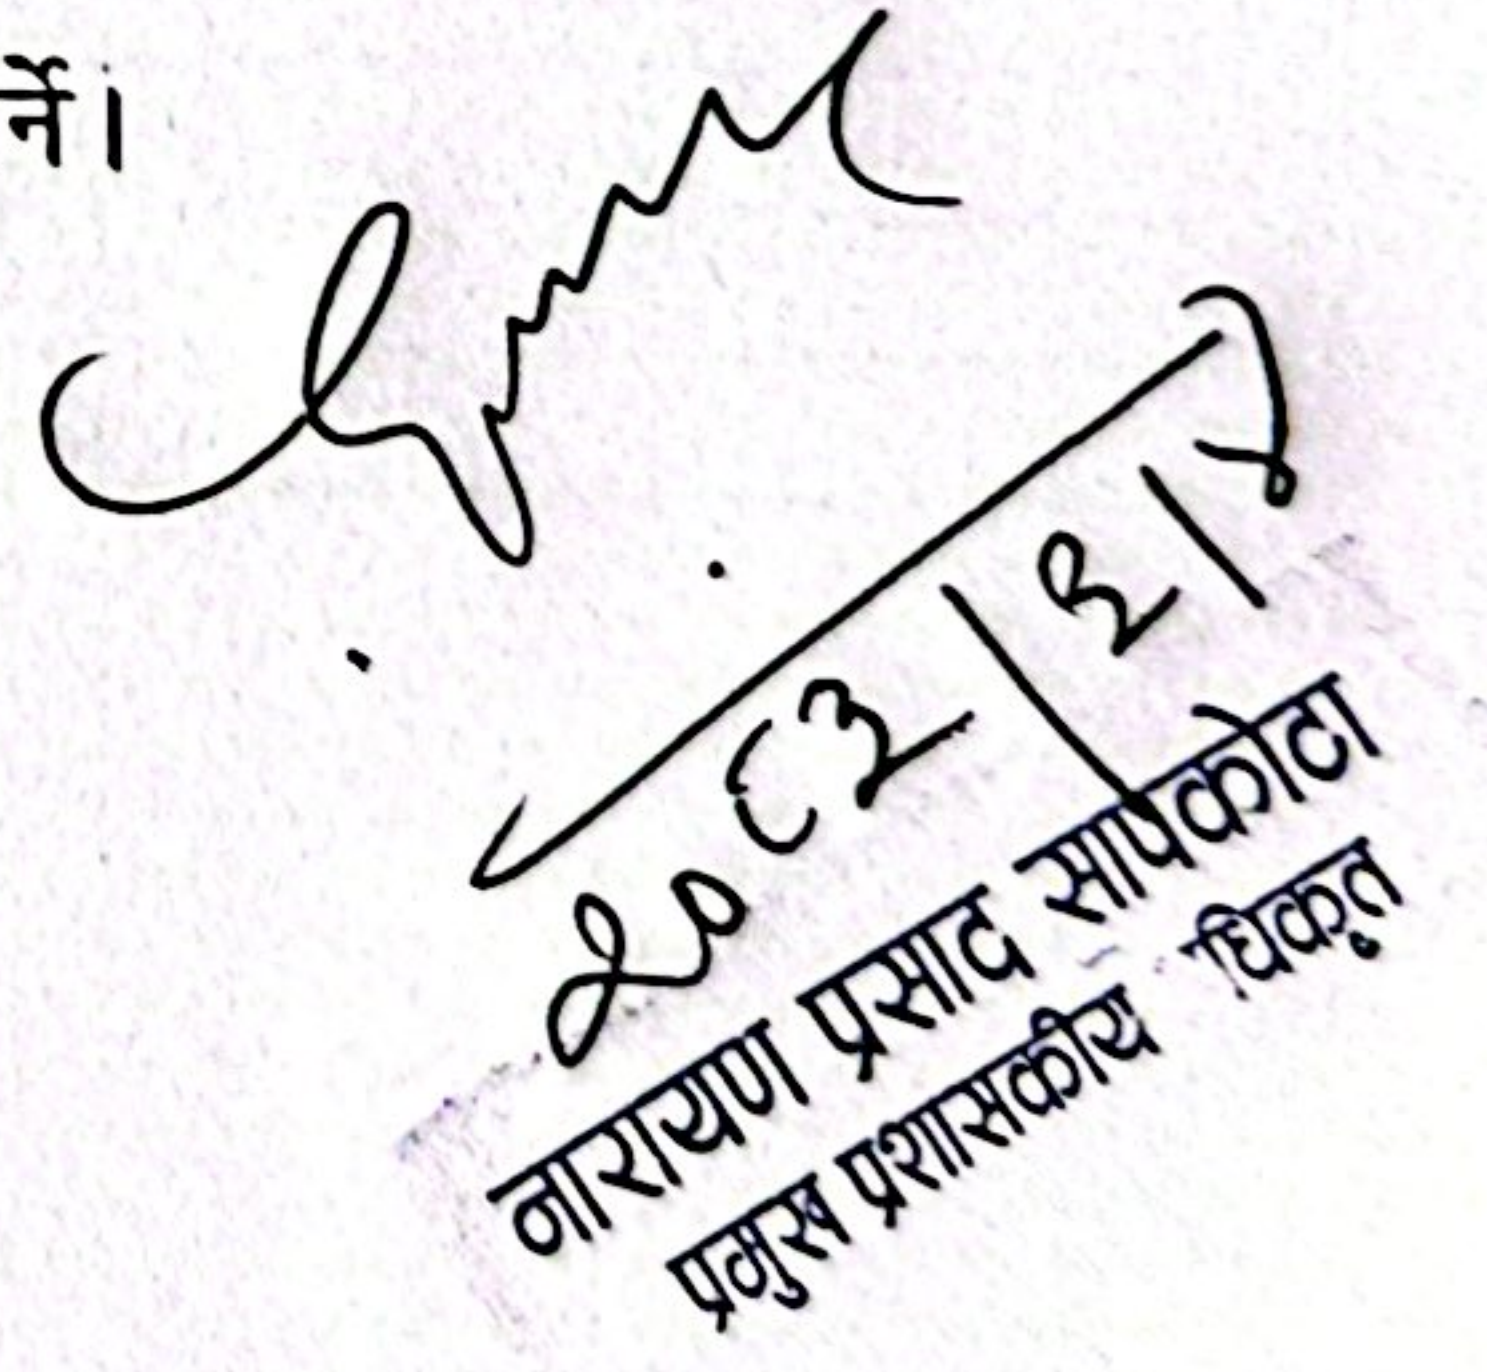 र्ने।
२०८३|२|४
नारायण प्रसाद सापकोटा
प्रमुख प्रशासकीय धिकृत